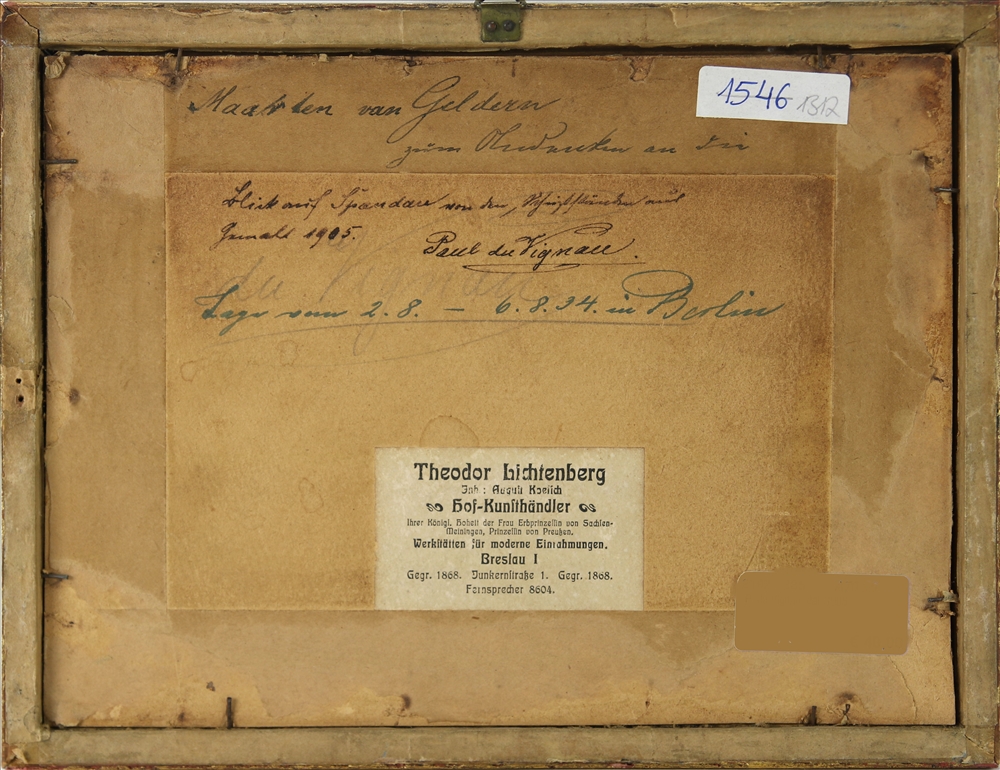 1546 1312
Maarten van Geldern
zum Andenken an die
Blick auf Spandau von den
Gemalt 1905.
Paul du Vignau.
du Vignau
Tage vom 2.8. – 6.8.34. in Berlin
Theodor Lichtenberg
Inh.: August Koelich
Hof-Kunsthändler
Ihrer Königl. Hoheit der Frau Erbprinzessin von Sachsen-
Meiningen, Prinzessin von Preußen.
Werkstätten für moderne Einrahmungen.
Breslau I
Gegr. 1868. Junkernstraße 1. Gegr. 1868.
Fernsprecher 8604.